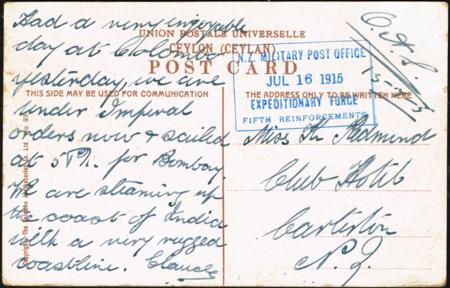 UNION POSTALE UNIVERSELLE
CEYLON (CEYLAN)
POST CARD
THIS SIDE MAY BE USED FOR COMMUNICATION
THE ADDRESS ONLY TO BE WRITTEN HERE
Had a very enjoyable
day at Colombo
yesterday, we are
under Imperal
orders now & sailed
at 5 P.M. for Bombay
We are steaming up
the coast of India
with a very rugged
coastline. Claude
N.Z. MILITARY POST OFFICE
JUL 16 1915
EXPEDITIONARY FORCE
FIFTH REINFORCEMENTS
Miss K. Redmond
Club Hotel
Carterton
N.Z.